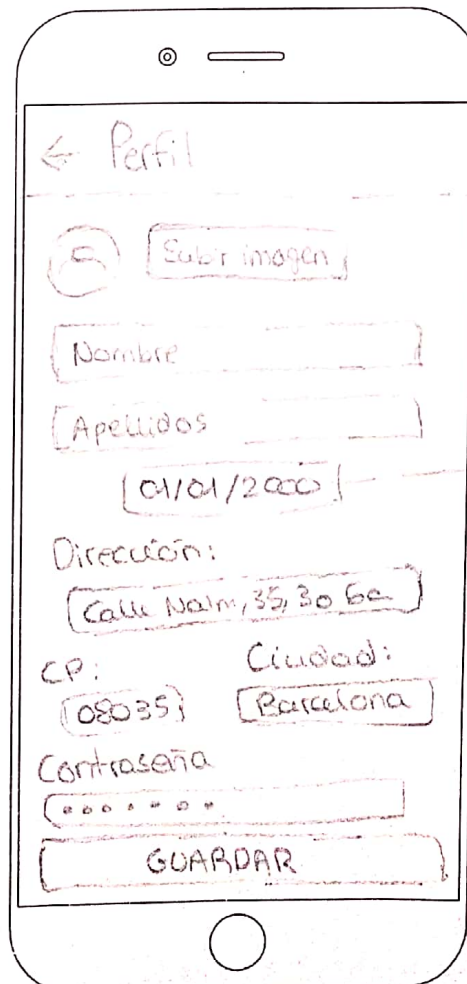 ← Perfil
Subir imagen
Nombre
Apellidos
01/01/2000
Dirección:
Calle Nalm, 35, 3o 6a
CP: Ciudad:
08035 Barcelona
Contraseña
•••••••
GUARDAR